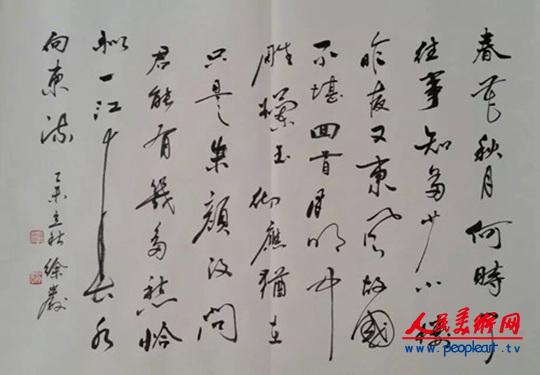 春花秋月何時了
往事知多少小樓
昨夜又東風故國
不堪回首月明中
雕欄玉砌應猶在
只是朱顏改問
君能有幾多愁恰
似一江春水
向東流 乙未立秋 徐
人民美术网
www.peopleart.tv